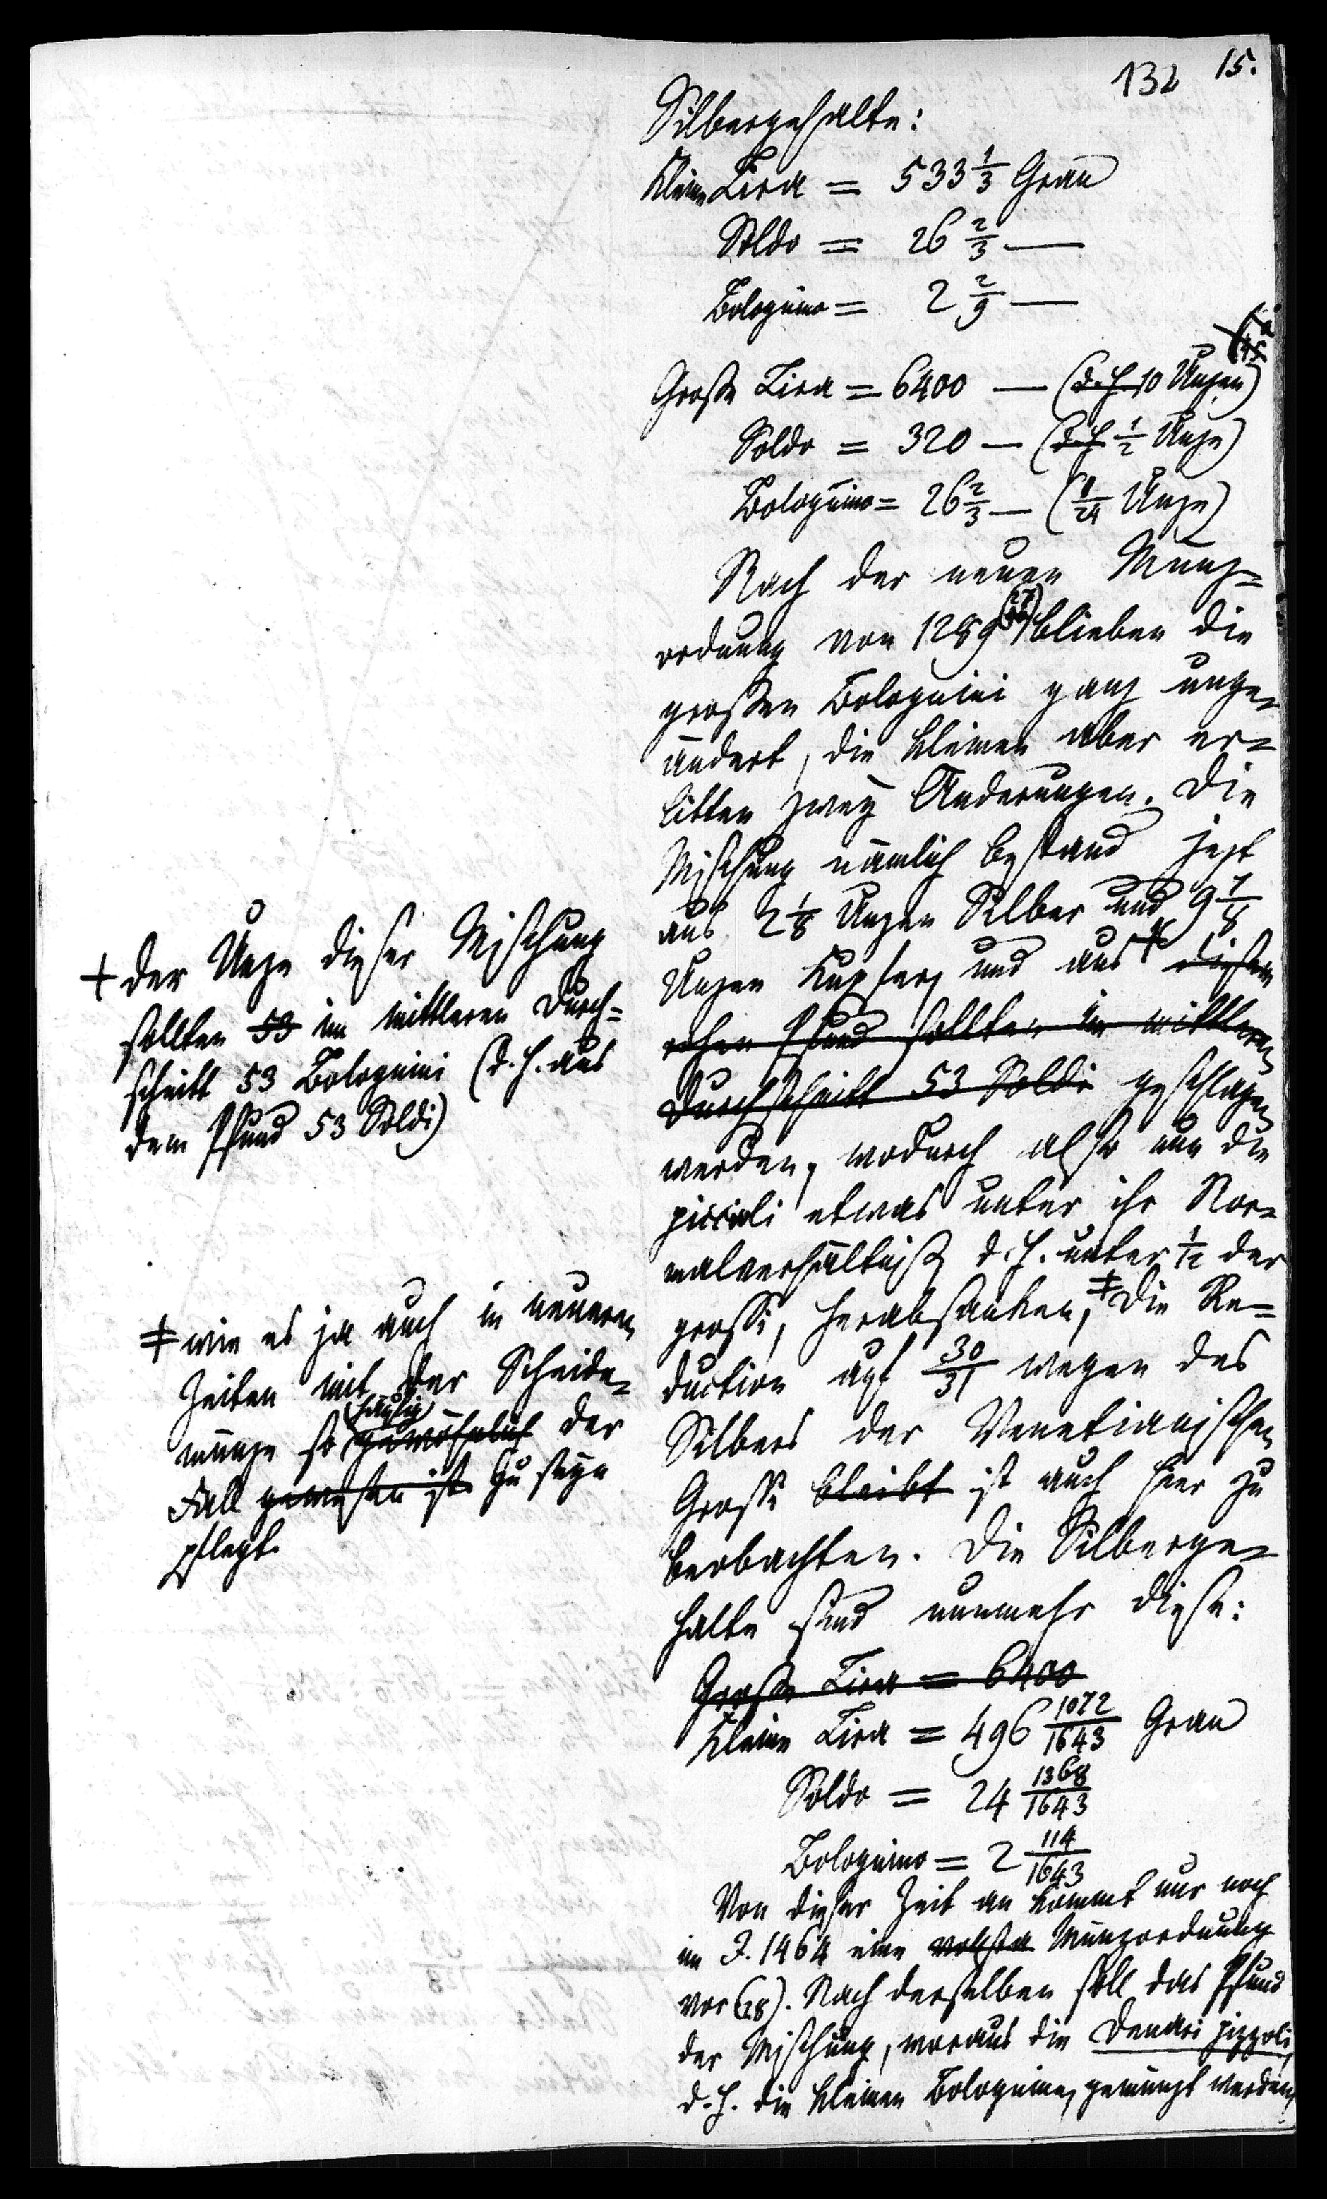 132 15.
Silbergehalte:
Kleine Lira = 533 1/3 Gran
Soldo = 26 2/3 —
Bolognino = 2 2/9 —
Große Lira = 6400 — (d. h. 10 Unzen)
Soldo = 320 — (d. h. 1/2 Unze)
Bolognino = 26 2/3 — (1/24 Unze)
Nach der neuen Münz-
ordnung von 1289 (27) blieben die
großen Bolognini ganz unge-
ändert, die kleinen aber er-
litten zwey Änderungen. Die
Mischung nämlich bestand jetzt
aus 2 1/8 Unzen Silber und 9 7/8
Unzen Kupfer, und aus + dieser
rohen Pfund sollten im mittleren
Durchschnitt 53 Soldi geschlagen
werden, wodurch also nun die
piccioli etwas unter ihr Nor-
malverhältniß, d. h. unter 1/12 der
grossi, herabsanken, ‡ Die Re-
duction auf 30/31 wegen des
Silbers der Venetianischen
Grossi bleibt ist auch hier zu
beobachten. Die Silberge-
halte sind nunmehr diese:
Große Lira = 6400
Kleine Lira = 496 1072/1643 Gran
Soldo = 24 1368/1643
Bolognino = 2 114/1643
Von dieser Zeit an kommt nur noch
im J. 1464 eine Münzordnung
vor (28). Nach derselben soll das Pfund
der Mischung, woraus die Denari pizzoli,
d. h. die kleinen Bolognini, gemünzt werden,
+ der Unze dieser Mischung
sollten 53 im mittleren Durch-
schnitt 53 Bolognini (d. h. aus
dem Pfund 53 Soldi)
‡ wie es ja auch in neueren
Zeiten mit der Scheide-
münze so häufig gewöhnlich der
Fall gewesen ist zu seyn
pflegt.